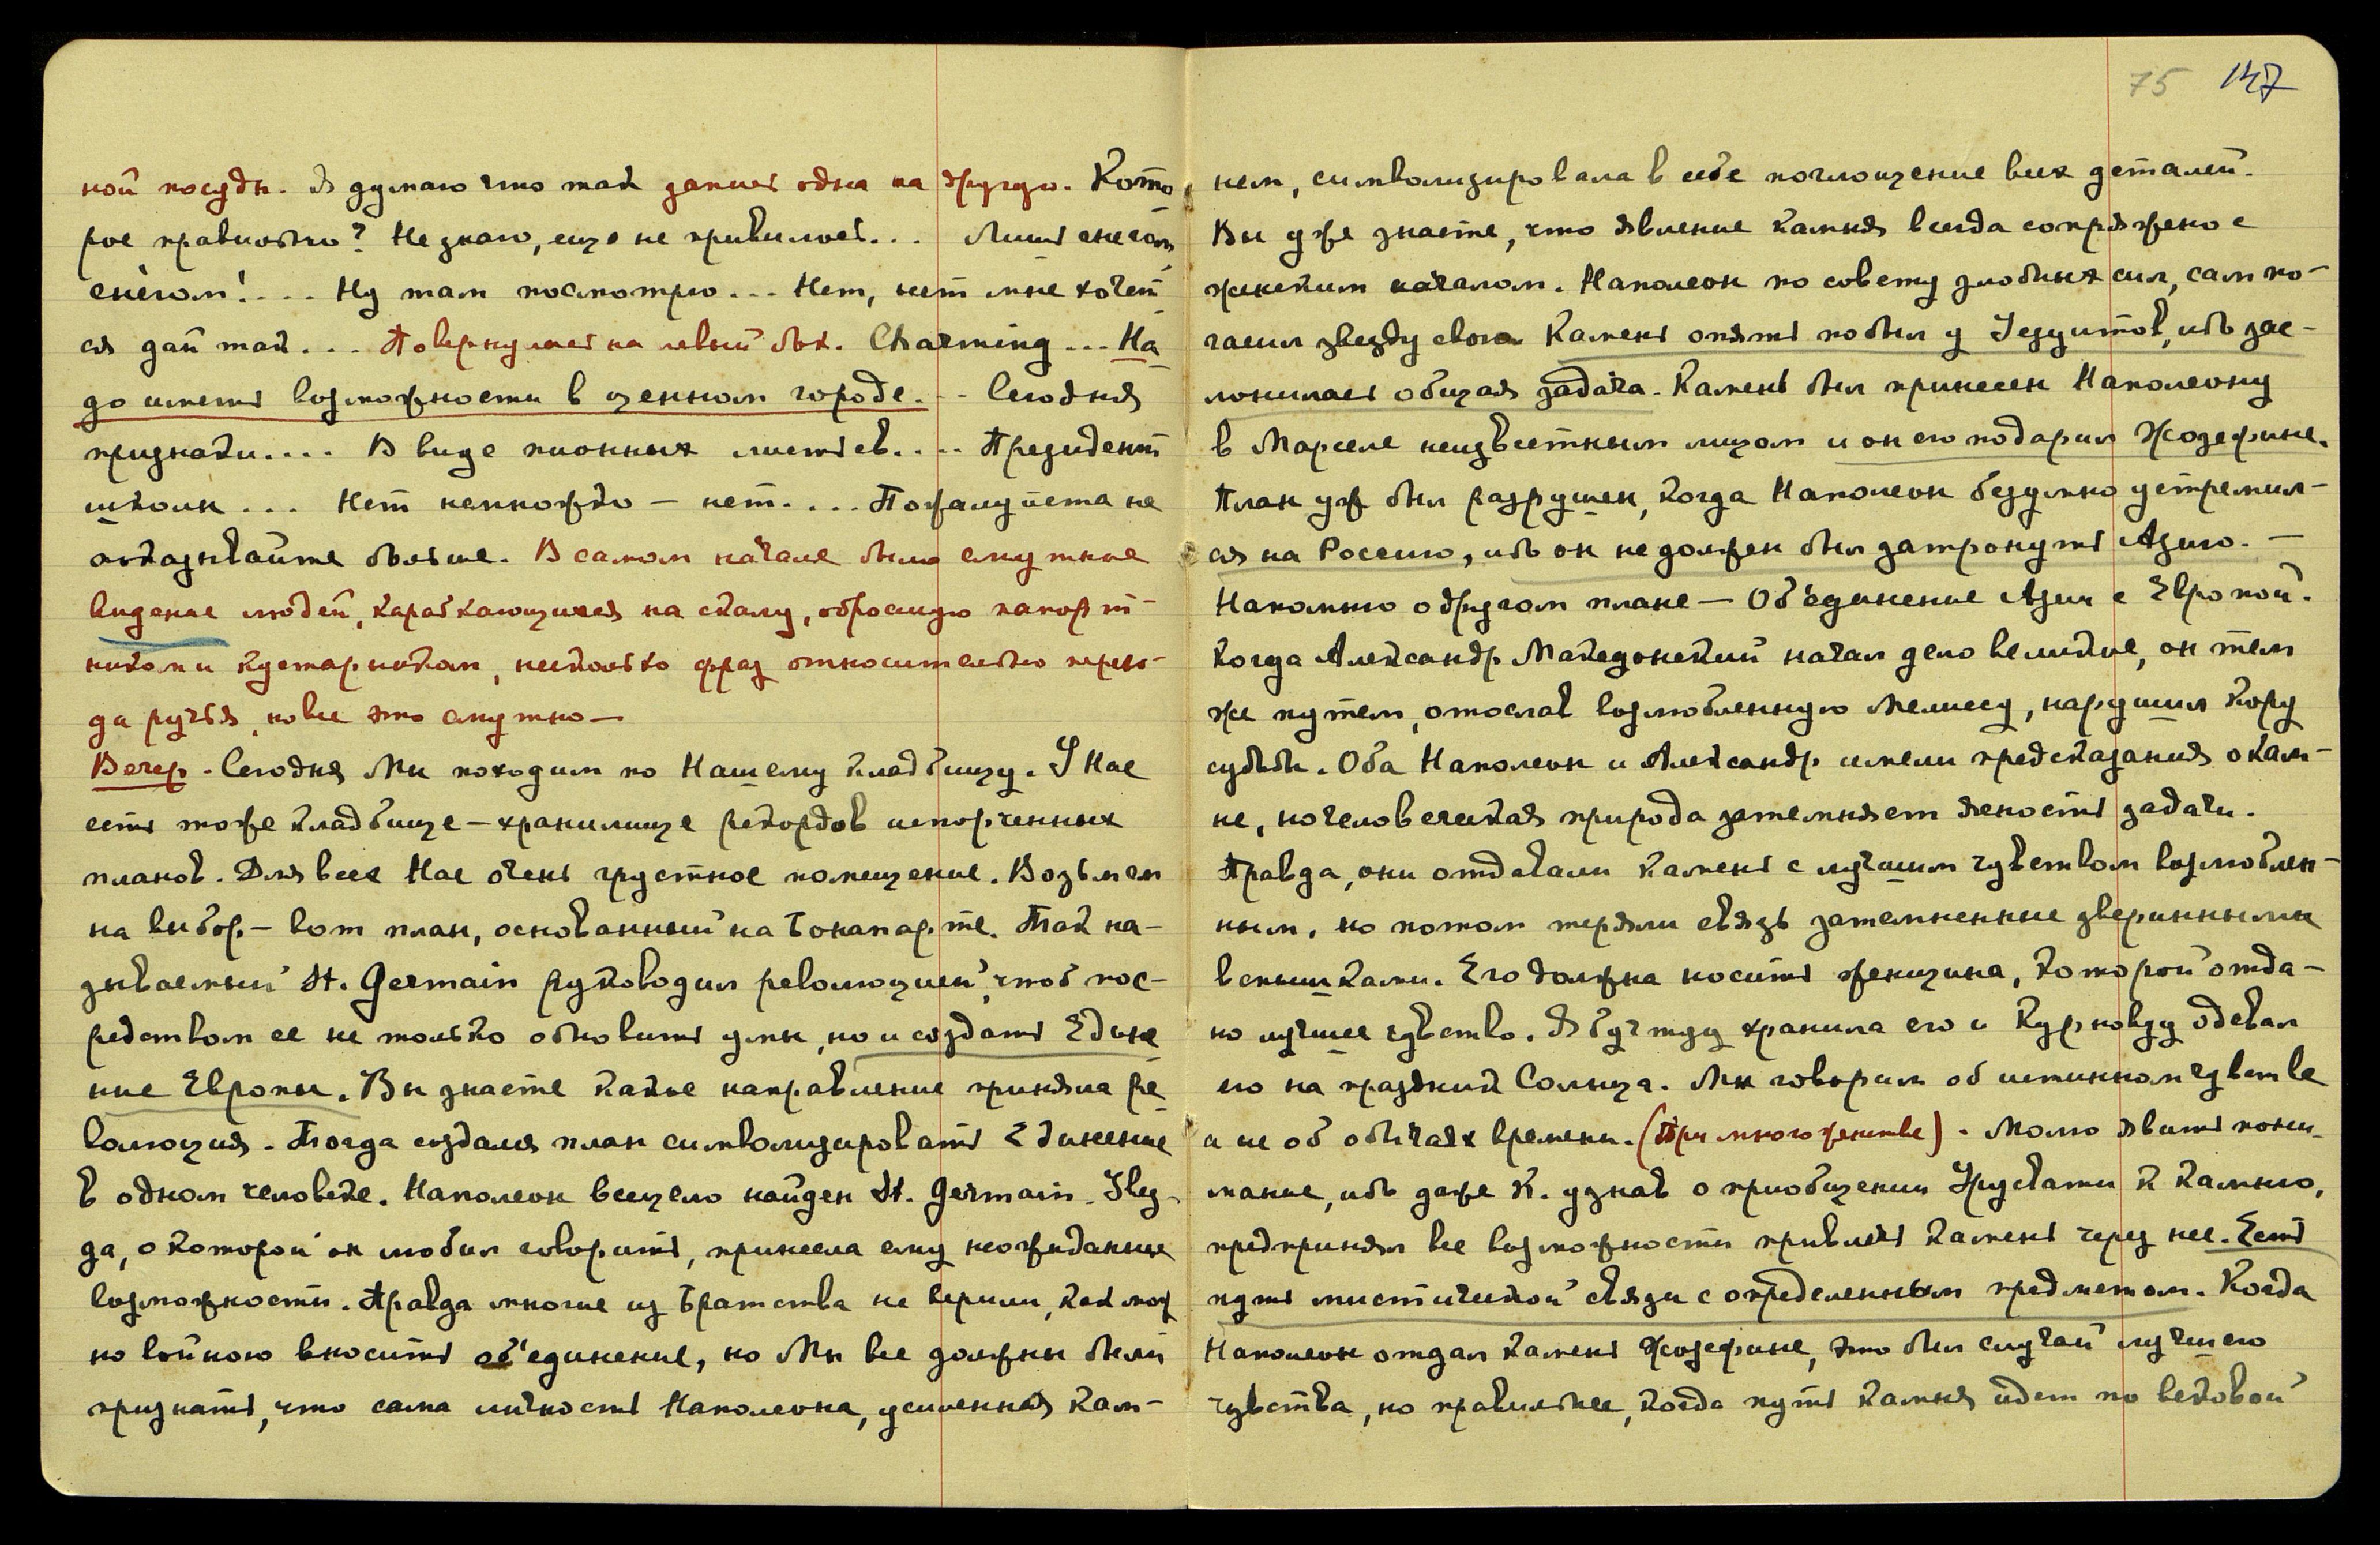 ной посуды. Я думаю что так запись одна на другую. Кото
рое правильно? Не знаю, еще не привилось... Лишь снегом
снегом!.... Ну там посмотрю... Нет, нет мне хочет
ся дай так... Повернулась на левый бок. Charming... На
до иметь возможности в ценном городе... Сегодня
признаки.... В виде пионных листьев.... Президент
школы... Нет немножко — нет.... Пожалуйста не
отказывайте больше. В самом начале было смутное
видение людей, карабкающихся на скалу, обросшую папорт-
никами кустарником, несколько фраз относительно
да ручья, но все это смутно —
Вечер. Сегодня Мы походим по Нашему кладбищу. У Нас
есть тоже кладбище — хранилище рекордов испорченных
планов. Для всех Нас очень грустное помещение. Возьмем
на выбор — вот план, основанный на Бонапарте. Так на-
зываемый St. Germain руководил революцией, чтоб пос-
редством ее не только обновить умы, но и создать Едине
ние Европы. Вы знаете какое направление приняла ре
волюция. Тогда создался план символизировать Единение
в одном человеке. Наполеон всецело найден St. Germain. Звез-
да, о которой он любил говорить, принесла ему неожиданные
возможности. Правда многие из Братства не верили, как мож
но войною вносить об'единение, но Мы все должны были
признать, что сама личность Наполеона, усиленная кам-
75 147
нем, символизировала в себе поглощение всех деталей.
Вы уже знаете, что явление камня всегда сопряжено с
женским началом. Наполеон по совету злобных сил, сам по-
гасил звезду свою. Камень опять побыл у Iезуитов, ибо зас-
лонилась общая задача. Камень был принесен Наполеону
в Марселе неизвестным лицом и он его подарил Жозефине.
План уж был разрушен, когда Наполеон безумно устремил-
ся на Россию, ибо он не должен был затронуть Азию. —
Напомню о другом плане — Об'единение Азии с Европой.
Когда Александр Македонский начал дело великое, он тем
же путем, отослав возлюбленную Мелиссу, нарушил кору
судьбы. Оба Наполеон и Александр имели предсказания о кам-
не, но человеческая природа затемняет ясность задачи.
Правда, они отдавали камень с лучшим чувством возлюблен-
ным, но потом теряли связь затемненные звериными
вспышками. Его должна носить женщина, которой отда-
но лучшее чувство. Я б у ч т у з хранила его и Курновуу одевал
его на праздник Солнца. Мы говорим об истинном чувстве
а не об обычаях времени. (При многоженстве). Молю явить пони-
мание, ибо даже К. узнав о приобщении Урусвати к камню,
предпринял все возможности привлечь камень через нее. Есть
путь мистической связи с определенным предметом. Когда
Наполеон отдал камень Жозефине, это был случай лучшего
чувства, но правильнее, когда путь камня идет по вековой